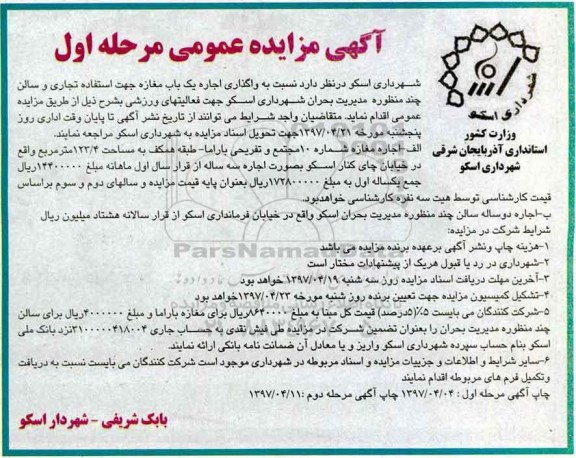 آگهی مزایده عمومی مرحله اول
شهرداری اسکو
وزارت کشور
استانداری آذربایجان شرقی
شهرداری اسکو
شهرداری اسکو درنظر دارد نسبت به واگذاری اجاره یک باب مغازه جهت استفاده تجاری و سالن
چند منظوره مدیریت بحران شهرداری اسکو جهت فعالیتهای ورزشی بشرح ذیل از طریق مزایده
عمومی اقدام نماید. متقاضیان واجد شرایط می توانند از تاریخ نشر آگهی تا پایان وقت اداری روز
پنجشنبه مورخه ۱۳۹۷/۰۴/۲۱جهت تحویل اسناد مزایده به شهرداری اسکو مراجعه نمایند.
الف-اجاره مغازه شماره ۱۰مجتمع و تفریحی یاراما- طبقه همکف به مساحت ۱۲۳/۴مترمربع واقع
در خیابان چای کنار اسکو بصورت اجاره سه ساله از قرار سال اول ماهانه مبلغ ۱۴۴۰۰۰۰۰ریال
جمع یکساله اول به مبلغ ۱۷۲۸۰۰۰۰۰ریال بعنوان پایه قیمت مزایده و سالهای دوم و سوم براساس
قیمت کارشناسی توسط هیت سه نفره کارشناسی خواهدبود.
ب-اجاره دوساله سالن چند منظوره مدیریت بحران اسکو واقع در خیابان فرمانداری اسکو از قرار سالانه هشتاد میلیون ریال
شرایط شرکت در مزایده:
۱-هزینه چاپ ونشر آگهی برعهده برنده مزایده می باشد
۲-شهرداری در رد یا قبول هریک از پیشنهادات مختار است
۳-آخرین مهلت دریافت اسناد مزایده روز سه شنبه ۱۳۹۷/۰۴/۱۹ خواهد بود
۴-تشکیل کمیسیون مزایده جهت تعیین برنده روز شنبه مورخه ۱۳۹۷/۰۴/۲۳ خواهد بود
۵-شرکت کنندگان می بایست ۵٪(۵درصد) قیمت کل مبنا به مبلغ ۸۶۴۰۰۰۰ریال برای مغازه یاراما و مبلغ ۴۰۰۰۰۰۰ریال برای سالن
چند منظوره مدیریت بحران را بعنوان تضمین شرکت در مزایده طی فیش نقدی به حساب جاری ۳۱۰۰۰۰۰۴۱۸۰۰۴نزد بانک ملی
اسکو بنام حساب سپرده شهرداری اسکو واریز و یا معادل آن ضمانت نامه بانکی ارائه نمایند.
۶-سایر شرایط و اطلاعات و جزییات مزایده و اسناد مربوطه در شهرداری موجود است شرکت کنندگان می بایست نسبت به دریافت
وتکمیل فرم های مربوطه اقدام نمایند
چاپ آگهی مرحله اول : ۱۳۹۷/۰۴/۰۴ چاپ آگهی مرحله دوم :۱۳۹۷/۰۴/۱۱
بابک شریفی - شهردار اسکو
ParsNamadData